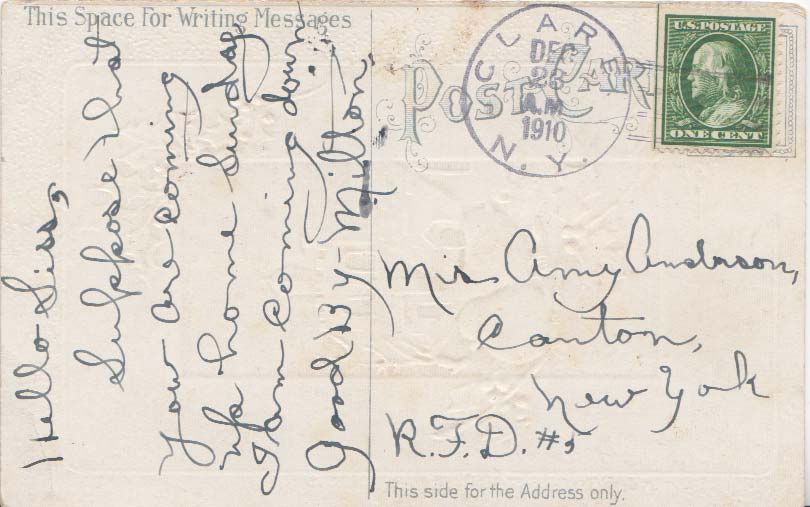 This Space For Writing Messages
Hello Siss,
Suppose that
You are coming
up home Sunday
I am coming down
Good By - Milton.
POST CARD
CLARE
DEC
23
A.M.
1910
N. Y.
U.S. POSTAGE
ONE CENT
Miss Amy Anderson,
Canton,
New York
R.F.D. #5
This side for the Address only.